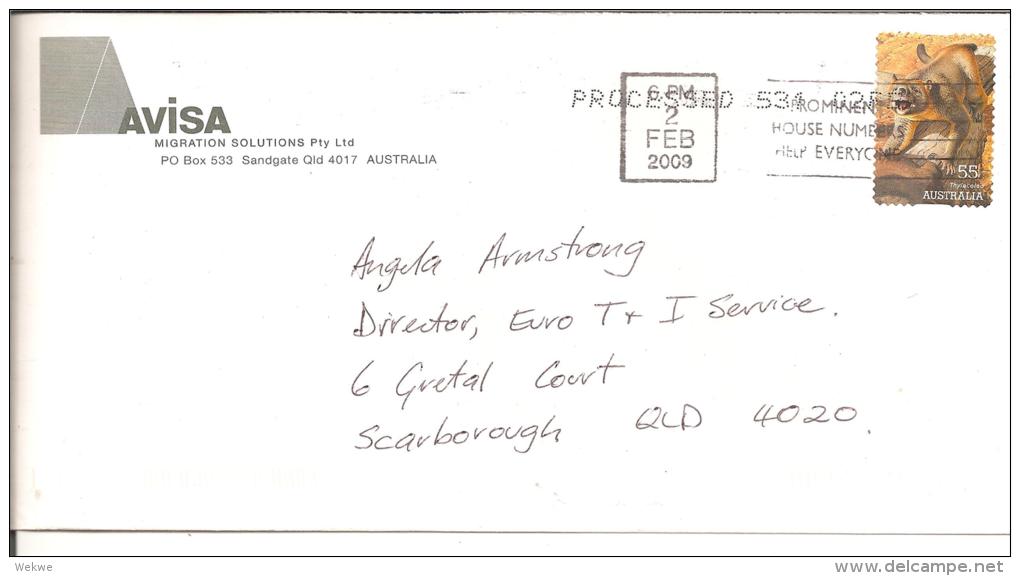 AVISA
MIGRATION SOLUTIONS Pty Ltd
PO Box 533 Sandgate Qld 4017 AUSTRALIA
PROCESSED 534
6 PM
2
FEB
2009
PROMINENT
HOUSE NUMBERS
HELP EVERYONE
55c
Thylacoleo
AUSTRALIA
Angela Armstrong
Director, Euro T + I Service.
6 Gretal Court
Scarborough QLD 4020.
Wekwe
delcampe.net